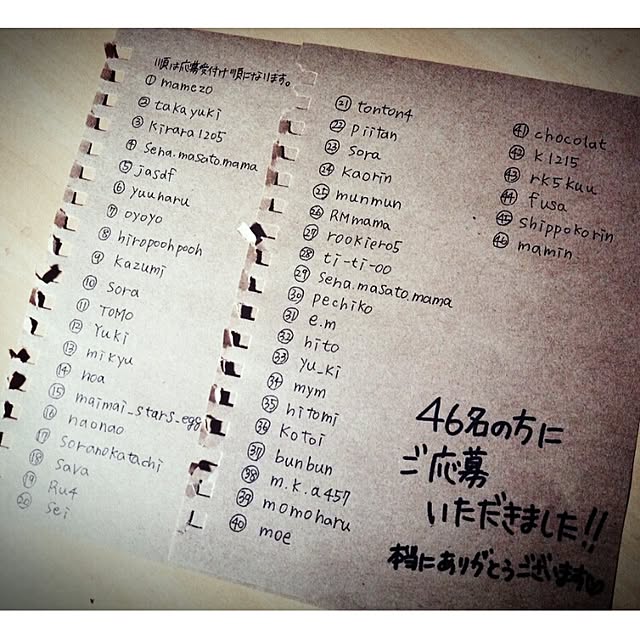 順は応募受付け順になります。
① mamezo
② takayuki
③ Kirara1205
④ Sena.masato.mama
⑤ jasdf
⑥ yuuharu
⑦ oyoyo
⑧ hiropoohpooh
⑨ Kazumi
⑩ Sora
⑪ TOMO
⑫ Yuki
⑬ mikyu
⑭ noa
⑮ maimai_stars_egg
⑯ naonao
⑰ Soranokatachi
⑱ Sava
⑲ Ru4
⑳ Sei
㉑ tonton4
㉒ Piitan
㉓ Sora
㉔ Kaorin
㉕ munmun
㉖ RMmama
㉗ rookiero5
㉘ ti-ti-oo
㉙ Sena.masato.mama
㉚ Pechiko
㉛ e.m
㉜ hito
㉝ yu_ki
㉞ mym
㉟ hitomi
㊱ Kotoi
㊲ bunbun
㊳ m.k.a457
㊴ momoharu
㊵ moe
㊶ chocolat
㊷ K1215
㊸ rk5kuu
㊹ fusa
㊺ Shippokorin
㊻ mamin
46名の方に
ご応募
いただきました!!
本当にありがとうございます♡